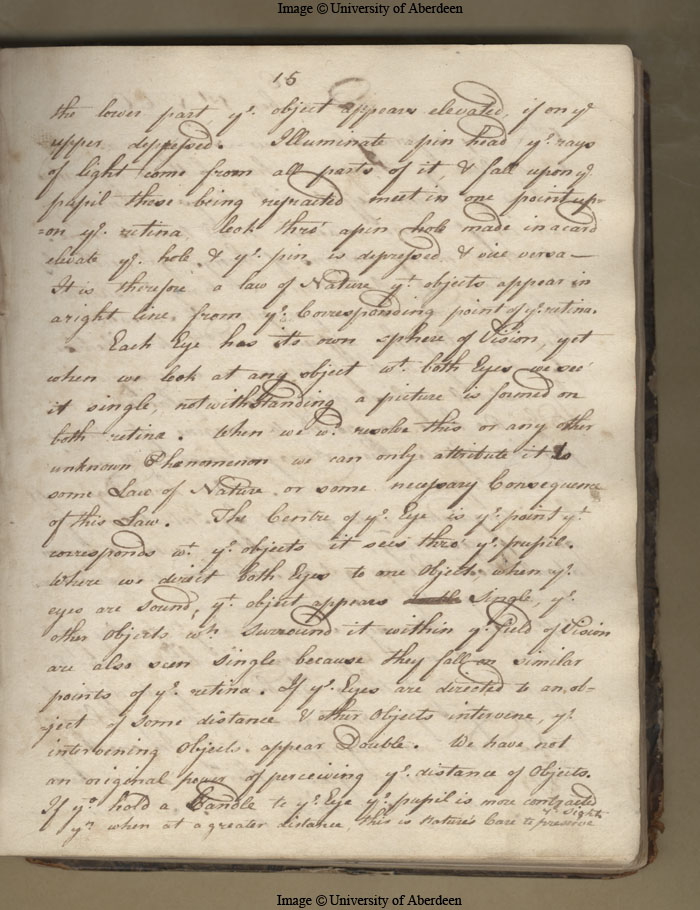 Image © University of Aberdeen
15
the lower part, yᵉ. object appears elevated, if on yᵉ
upper depressed. Illuminate a pin head yᵉ. rays
of light come from all parts of it, & fall upon yᵉ
pupil these being refracted meet in one point up-
=on yᵉ. retina, look thro' a pin hole made in a card
elevate yᵉ. hole & yᵉ. pin is depressed & vice versa —
It is therefore a law of Nature yᵗ. objects appear in
a right line from yᵉ. Corresponding point of yᵉ. retina.
Each Eye has its own sphere of Vision, yet
when we look at any object wᵗ. both Eyes we see
it single, notwithstanding a picture is formed on
both retina. When we wᵈ. resolve this or any other
unknown Phenomenon we can only attribute it to
some Law of Nature or some necessary Consequence
of this Law. The Centre of yᵉ. Eye is yᵉ. point yᵗ.
corresponds wᵗ. yᵉ. objects it sees thro' yᵉ. pupil.
Where we direct both Eyes to one Object, when yᵉ.
eyes are sound, yᵗ. object appears Single, yᵉ.
other Objects wh surround it within yᵉ. field of Vision
are also seen Single because they fall on similar
points of yᵉ. retina. If yᵉ. Eyes are directed to an ob-
-ject of some distance & other Objects intervene, yᵉ.
intervening Objects appear Double. We have not
an original power of perceiving yᵉ. distance of Objects.
If yᵘ. hold a Candle to yᵉ. Eye yᵉ. pupil is more contracted
yⁿ. when at a greater distance, this is Nature's Care to preserve yᵉ. Sight
Image © University of Aberdeen